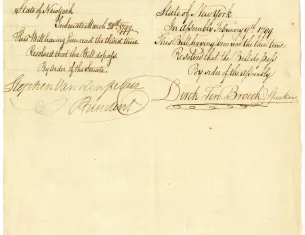 State of New York
In Senate March 28th 1799
This Bill having been read the third time
Resolved that the Bill do pass
By order of the Senate
Stephen Van Rensselaer
President
State of New York
In Assembly February 1799
This Bill having been read the third time
Resolved that the Bill do pass
By order of the Assembly
Dirck Ten Broeck Speaker